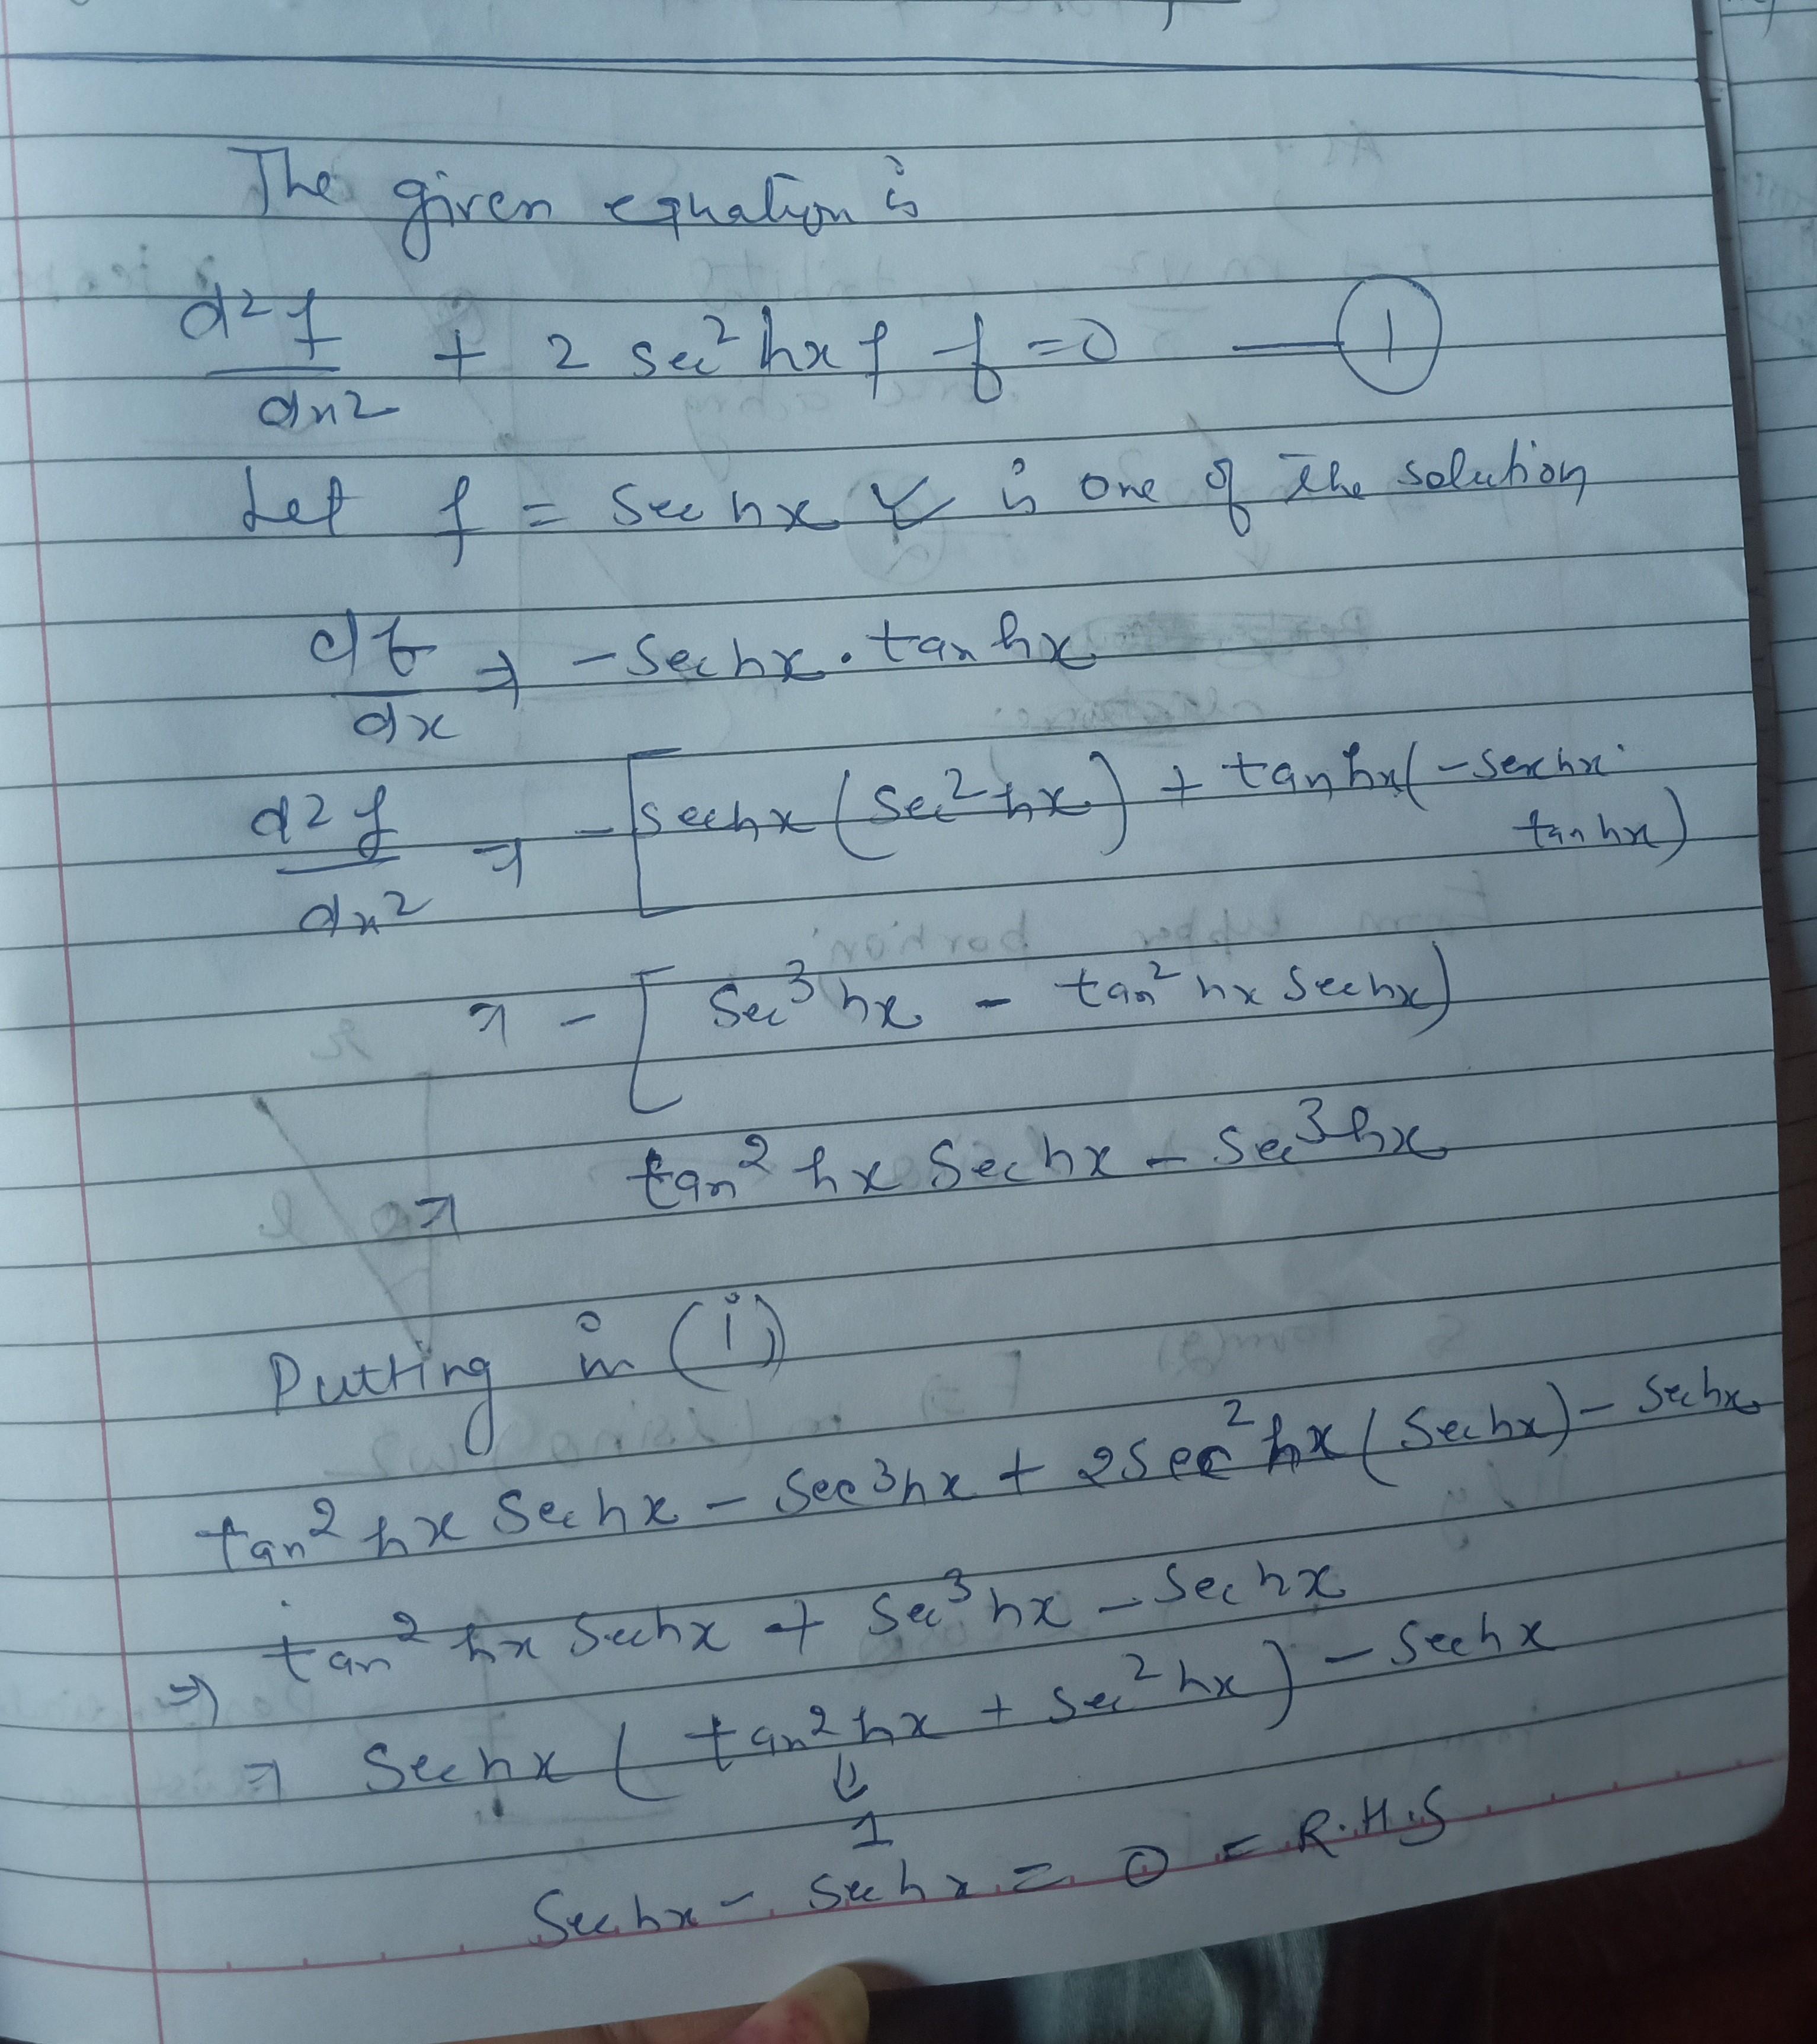 The given equation is
d²f/dx² + 2 sec²hx f - f = 0 — 1
Let f = sechx is one of the solution
df/dx ⇒ - sechx . tanhx
d²f/dx² ⇒ - [sechx (sec²hx) + tanhx (-sechx .
tanhx)
⇒ - [sec³hx - tan²hx sechx)
⇒ tan²hx sechx - sec³hx
Putting in (i)
tan²hx sechx - sec³hx + 2sec²hx (sechx) - sechx
⇒ tan²hx sechx + sec³hx - sechx
⇒ sechx (tan²hx + sec²hx) - sechx
⇓
1
sechx - sechx = 0 = R.H.S